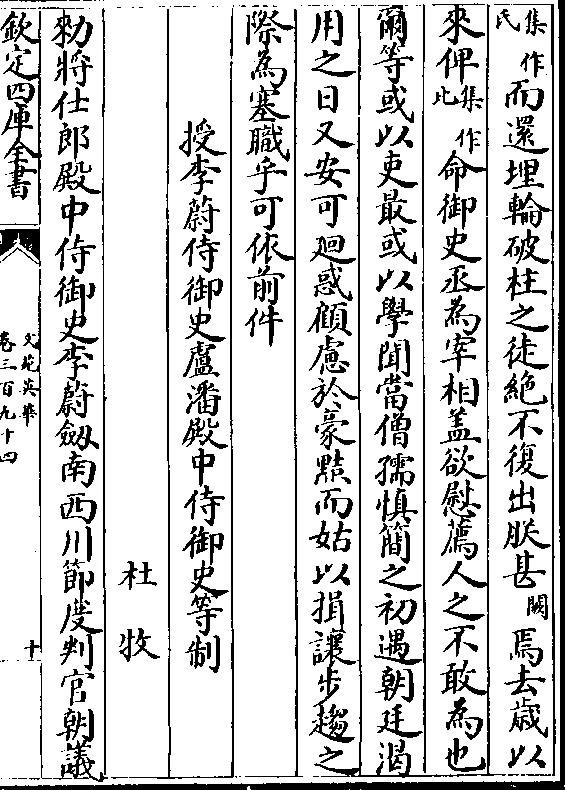 集作氏而還埋輪破柱之徒絶不復出朕甚闕焉去歲以
來俾集作比命御史丞為宰相盖欲慰薦人之不敢為也
爾等或以吏最或以學聞當僧孺慎簡之初遇朝廷渴
用之日又安可廻惑顧慮於豪黠而姑以揖讓步趨之
際為塞職乎可依前件
授李蔚侍御史盧潘殿中侍御史等制
杜牧
勑將仕郎殿中侍御史李蔚劔南西川節度判官朝議
欽定四庫全書
文苑英華
卷三百九十四
十